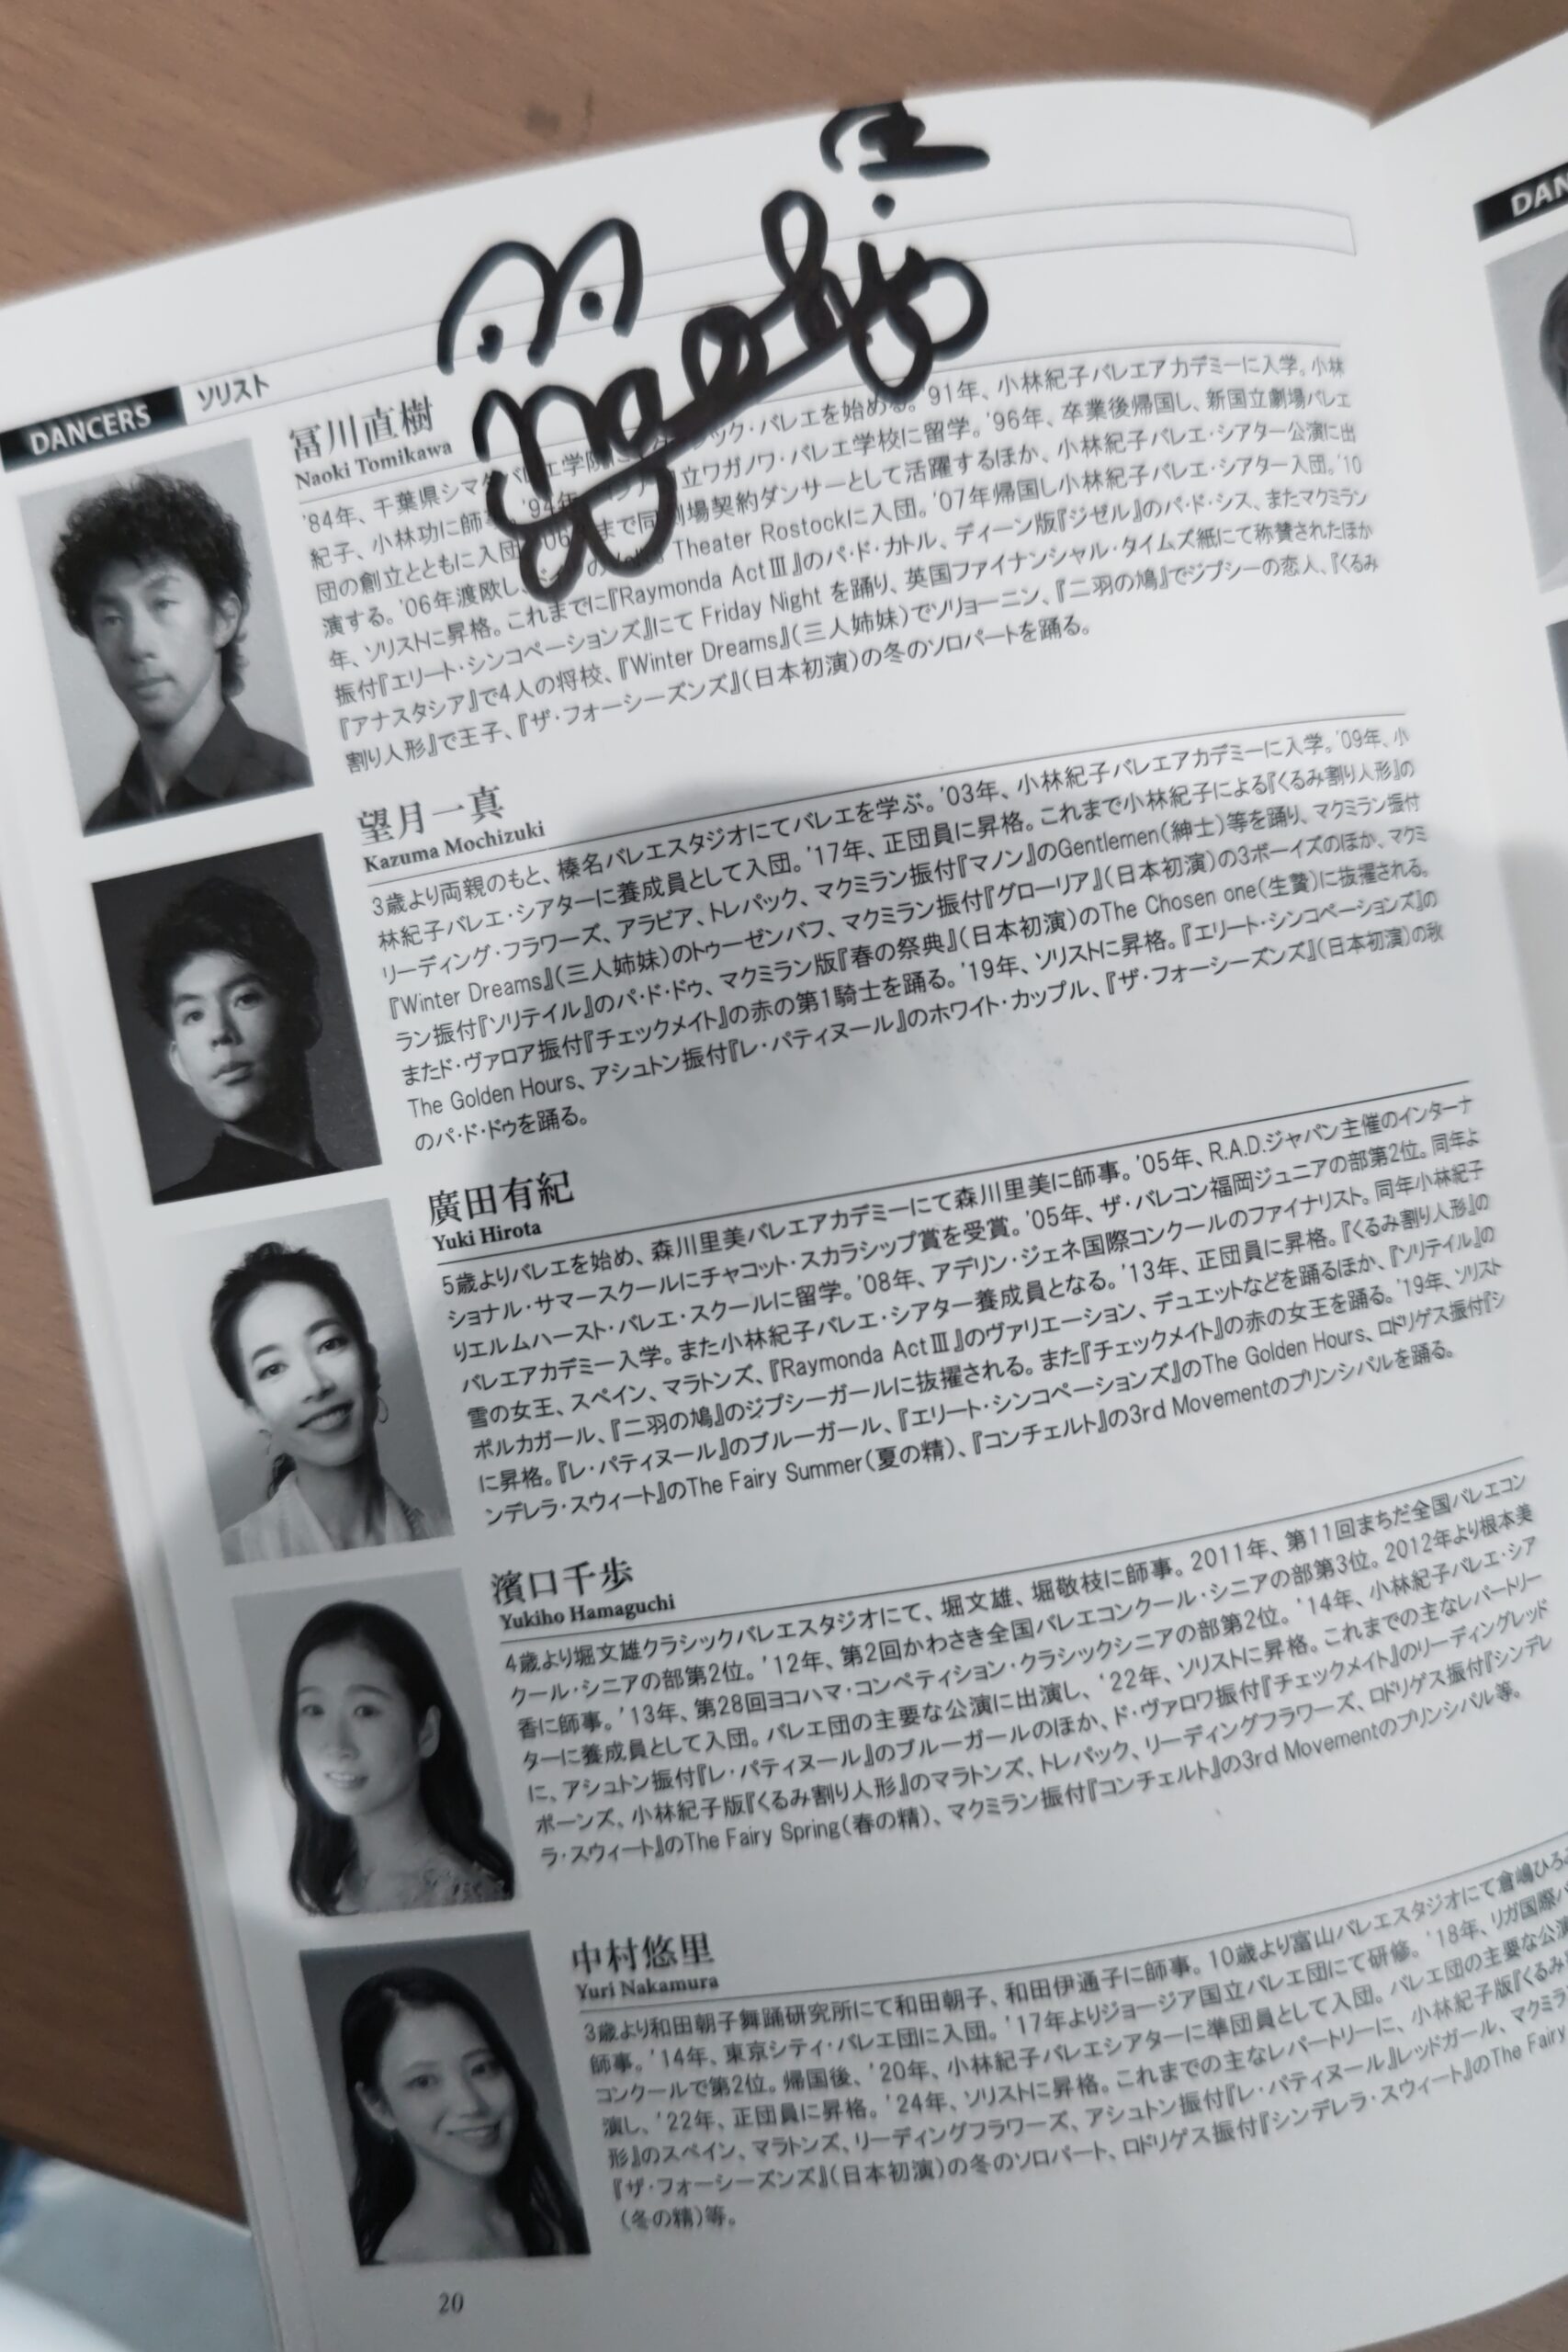 DANCERS ソリスト
冨川直樹
Naoki Tomikawa
'84年、千葉県シマダバレエ学院に シック・バレエを始める。'91年、小林紀子バレエアカデミーに入学。小林
紀子、小林功に師事。'94年 立ワガノワ・バレエ学校に留学。'96年、卒業後帰国し、新国立劇場バレエ
団の創立とともに入団 '06 まで同劇場契約ダンサーとして活躍するほか、小林紀子バレエ・シアター公演に出
演する。'06年渡欧し、ドイツの Theater Rostockに入団。'07年帰国し小林紀子バレエ・シアター入団。'10
年、ソリストに昇格。これまでに『Raymonda ActⅢ』のパ・ド・カトル、ディーン版『ジゼル』のパ・ド・シス、またマクミラン
振付『エリート・シンコペーションズ』にて Friday Night を踊り、英国ファイナンシャル・タイムズ紙にて称賛されたほか
『アナスタシア』で4人の将校、『Winter Dreams』(三人姉妹)でソリョーニン、『二羽の鳩』でジプシーの恋人、『くるみ
割り人形』で王子、『ザ・フォーシーズンズ』(日本初演)の冬のソロパートを踊る。
望月一真
Kazuma Mochizuki
3歳より両親のもと、榛名バレエスタジオにてバレエを学ぶ。'03年、小林紀子バレエアカデミーに入学。'09年、小
林紀子バレエ・シアターに養成員として入団。'17年、正団員に昇格。これまで小林紀子による『くるみ割り人形』の
リーディング・フラワーズ、アラビア、トレパック、マクミラン振付『マノン』のGentlemen(紳士)等を踊り、マクミラン振付
『Winter Dreams』(三人姉妹)のトゥーゼンバフ、マクミラン振付『グローリア』(日本初演)の3ボーイズのほか、マクミ
ラン振付『ソリテイル』のパ・ド・ドゥ、マクミラン版『春の祭典』(日本初演)のThe Chosen one(生贄)に抜擢される。
またド・ヴァロア振付『チェックメイト』の赤の第1騎士を踊る。'19年、ソリストに昇格。『エリート・シンコペーションズ』の
The Golden Hours、アシュトン振付『レ・パティヌール』のホワイト・カップル、『ザ・フォーシーズンズ』(日本初演)の秋
のパ・ド・ドゥを踊る。
廣田有紀
Yuki Hirota
5歳よりバレエを始め、森川里美バレエアカデミーにて森川里美に師事。'05年、R.A.D.ジャパン主催のインターナ
ショナル・サマースクールにチャコット・スカラシップ賞を受賞。'05年、ザ・バレコン福岡ジュニアの部第2位。同年よ
りエルムハースト・バレエ・スクールに留学。'08年、アデリン・ジェネ国際コンクールのファイナリスト。同年小林紀子
バレエアカデミー入学。また小林紀子バレエ・シアター養成員となる。'13年、正団員に昇格。『くるみ割り人形』の
雪の女王、スペイン、マラトンズ、『Raymonda ActⅢ』のヴァリエーション、デュエットなどを踊るほか、『ソリテイル』の
ポルカガール、『二羽の鳩』のジプシーガールに抜擢される。また『チェックメイト』の赤の女王を踊る。'19年、ソリスト
に昇格。『レ・パティヌール』のブルーガール、『エリート・シンコペーションズ』のThe Golden Hours、ロドリゲス振付『シ
ンデレラ・スウィート』のThe Fairy Summer(夏の精)、『コンチェルト』の3rd Movementのプリンシパルを踊る。
濱口千歩
Yukiho Hamaguchi
4歳より堀文雄クラシックバレエスタジオにて、堀文雄、堀敬枝に師事。2011年、第11回まちだ全国バレエコン
クール・シニアの部第2位。'12年、第2回かわさき全国バレエコンクール・シニアの部第3位。2012年より根本美
香に師事。'13年、第28回ヨコハマ・コンペティション・クラシックシニアの部第2位。'14年、小林紀子バレエ・シア
ターに養成員として入団。バレエ団の主要な公演に出演し、'22年、ソリストに昇格。これまでの主なレパートリー
に、アシュトン振付『レ・パティヌール』のブルーガールのほか、ド・ヴァロワ振付『チェックメイト』のリーディングレッド
ポーンズ、小林紀子版『くるみ割り人形』のマラトンズ、トレパック、リーディングフラワーズ、ロドリゲス振付『シンデレ
ラ・スウィート』のThe Fairy Spring(春の精)、マクミラン振付『コンチェルト』の3rd Movementのプリンシパル等。
中村悠里
Yuri Nakamura
3歳より和田朝子舞踊研究所にて和田朝子、和田伊通子に師事。10歳より富山バレエスタジオにて倉嶋ひろみ
師事。'14年、東京シティ・バレエ団に入団。'17年よりジョージア国立バレエ団にて研修。'18年、リガ国際バ
コンクールで第2位。帰国後、'20年、小林紀子バレエシアターに準団員として入団。バレエ団の主要な公演
演し、'22年、正団員に昇格。'24年、ソリストに昇格。これまでの主なレパートリーに、小林紀子版『くるみ
形』のスペイン、マラトンズ、リーディングフラワーズ、アシュトン振付『レ・パティヌール』レッドガール、マクミラ
『ザ・フォーシーズンズ』(日本初演)の冬のソロパート、ロドリゲス振付『シンデレラ・スウィート』のThe Fairy
(冬の精)等。
20
DAN